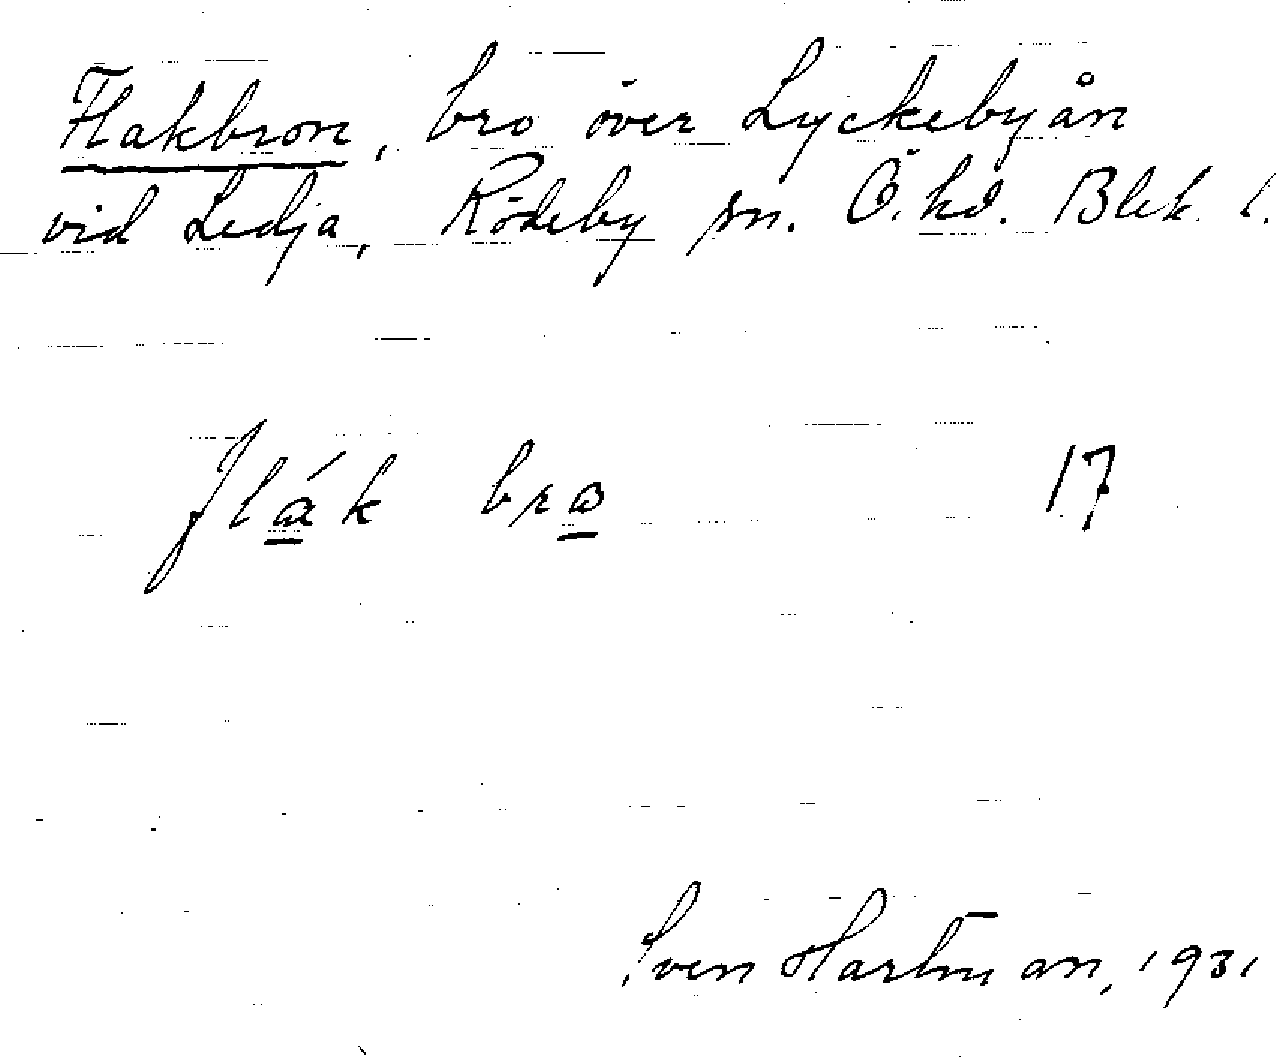 Flakbron, bro över Lyckebyån
vid Ledja, Rödeby sn. Ö. hd. Blek. l.
flák bro 17
Sven Hartman, 1931